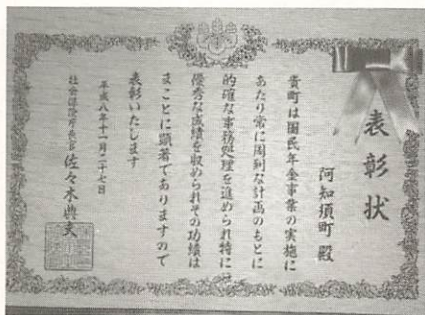 表彰状
阿知須町 殿
貴町は国民年金事業の実施に
あたり常に周到な計画のもとに
的確な事務処理を進められ特に
優秀な成績を収められその功績は
まことに顕著でありますので
表彰いたします
平成八年十一月二十七日
社会保険庁長官 佐々木典夫